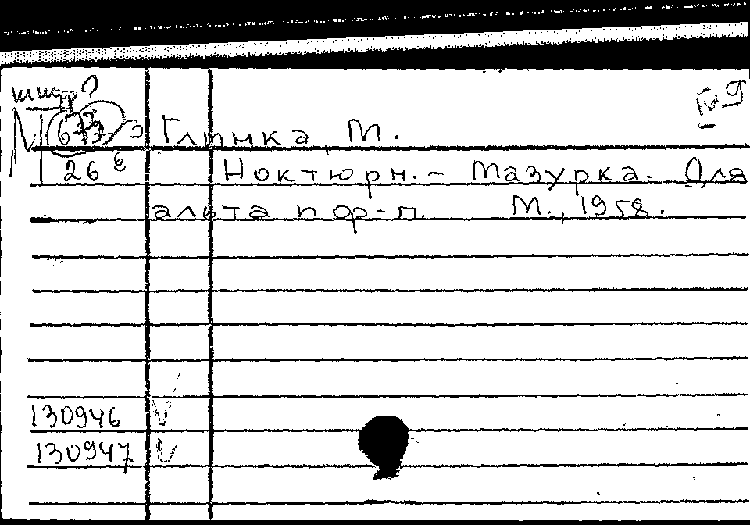 шифр?
Глинка, М.
26
Ноктюрн. - Мазурка. Для
альта и ф-п. М., 1958.
130946 V
130947 V